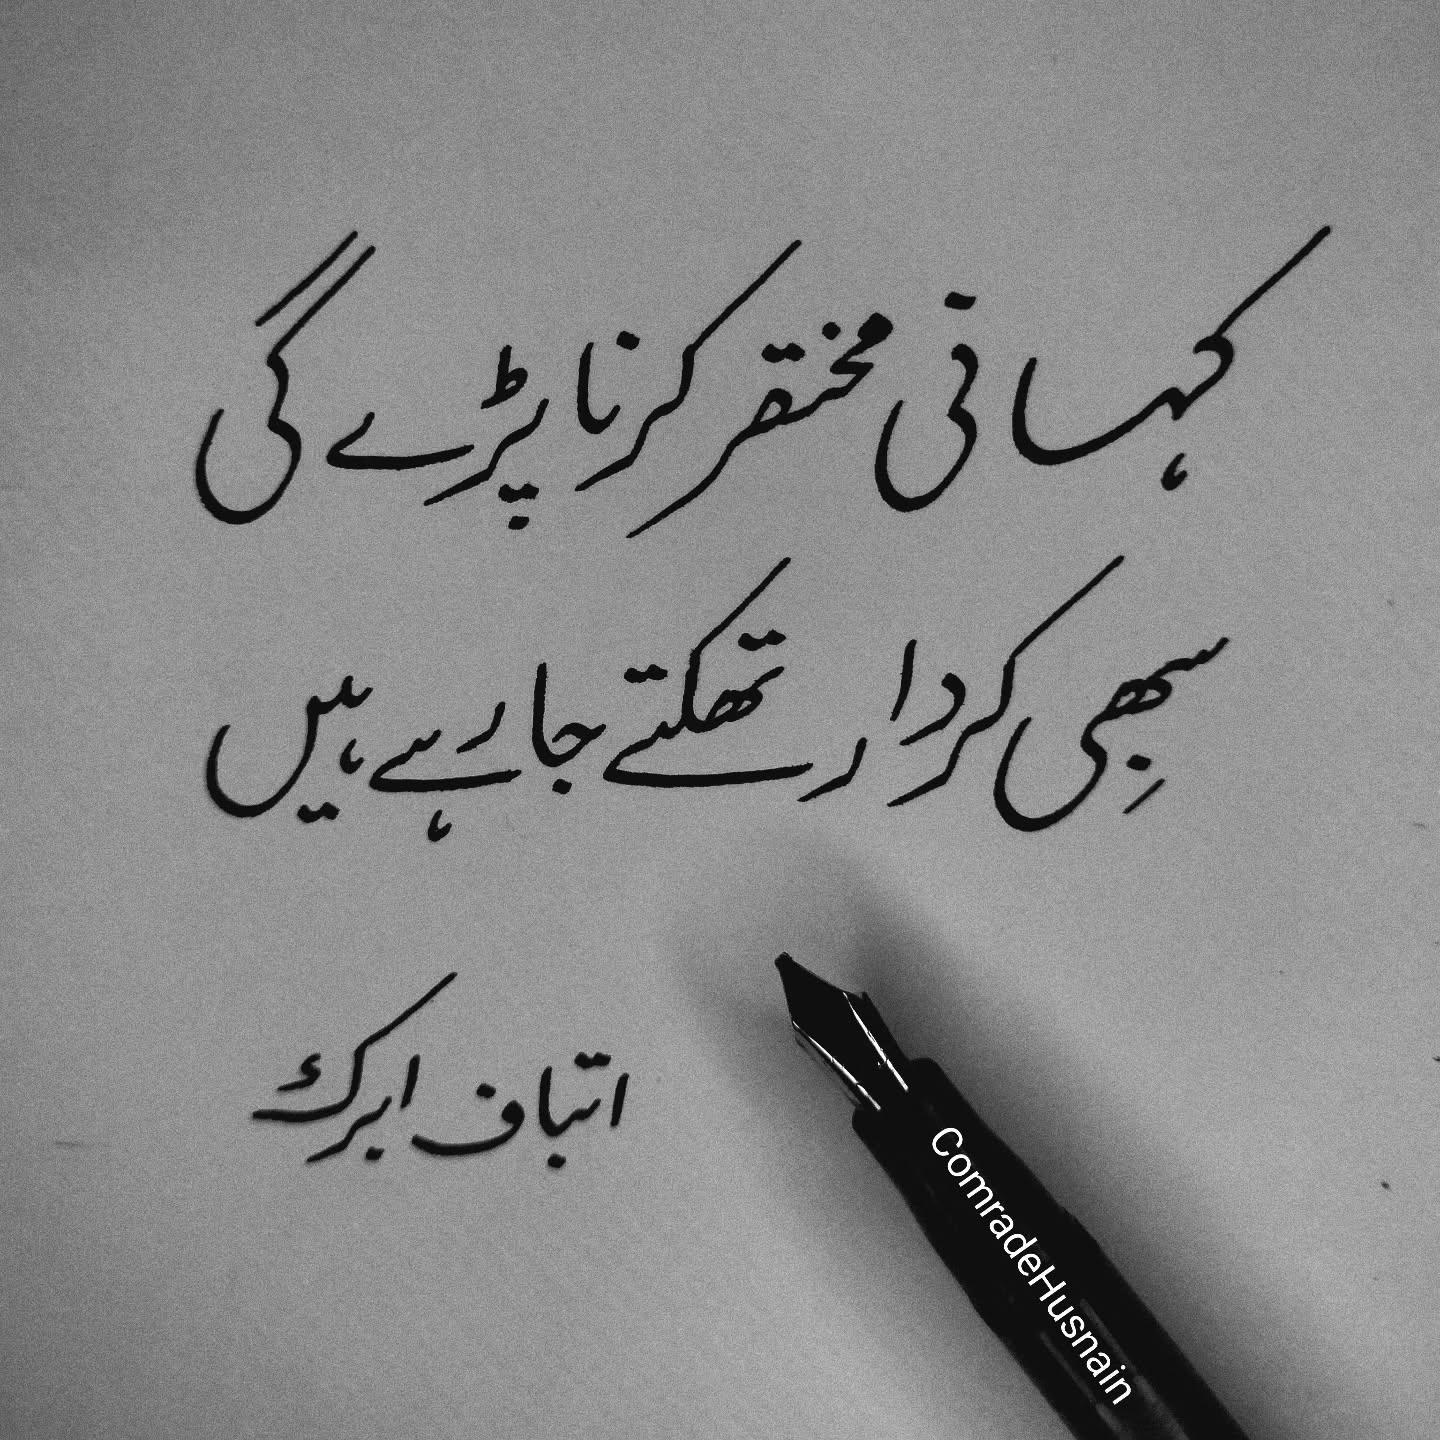 کہانی مختصر کرنا پڑے گی
سبھِی کردار تھکتے جا رہے ہیں
اتباف ابرک
ComradeHusnain